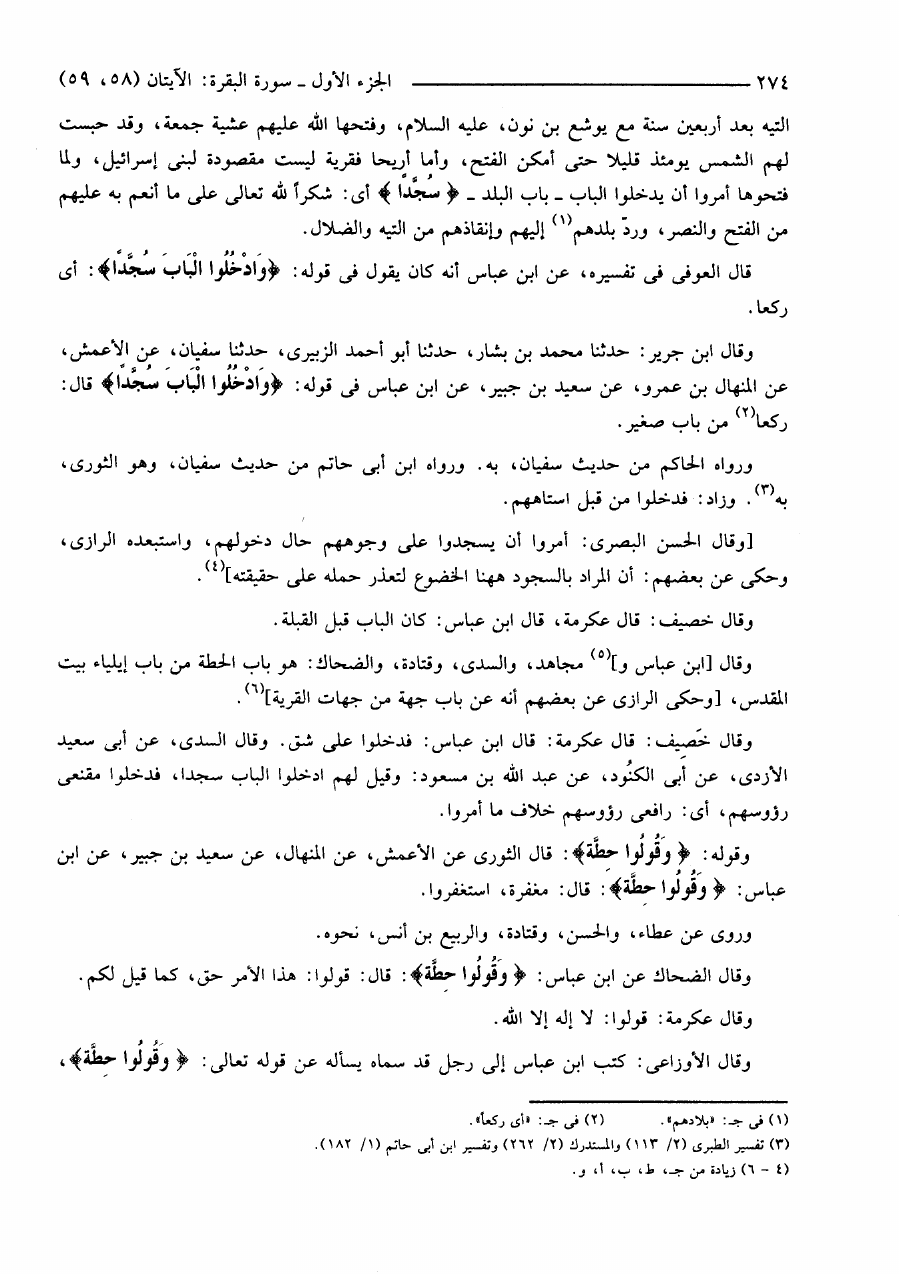 ٢٧٤ ــــــــــــــــــــــــ الجزء الأول ــ سورة البقرة: الآيتان (٥٨، ٥٩)
التيه بعد أربعين سنة مع يوشع بن نون، عليه السلام، وفتحها الله عليهم عشية جمعة، وقد حبست
لهم الشمس يومئذ قليلا حتى أمكن الفتح، وأما أريحا فقرية ليست مقصودة لبنى إسرائيل، ولما
فتحوها أمروا أن يدخلوا الباب ــ باب البلد ــ ﴿ سُجَّدًا ﴾ أى: شكراً لله تعالى على ما أنعم به عليهم
من الفتح والنصر، وردّ بلدهم(١) إليهم وإنقاذهم من التيه والضلال.
قال العوفى فى تفسيره، عن ابن عباس أنه كان يقول فى قوله: ﴿وَادْخُلُوا الْبَابَ سُجَّدًا﴾: أى
ركعا.
وقال ابن جرير: حدثنا محمد بن بشار، حدثنا أبو أحمد الزبيرى، حدثنا سفيان، عن الأعمش،
عن المنهال بن عمرو، عن سعيد بن جبير، عن ابن عباس فى قوله: ﴿وَادْخُلُوا الْبَابَ سُجَّدًا﴾ قال:
ركعا(٢) من باب صغير.
ورواه الحاكم من حديث سفيان، به. ورواه ابن أبى حاتم من حديث سفيان، وهو الثورى،
به(٣). وزاد: فدخلوا من قبل استاههم.
[وقال الحسن البصرى: أمروا أن يسجدوا على وجوههم حال دخولهم، واستبعده الرازى،
وحكى عن بعضهم: أن المراد بالسجود ههنا الخضوع لتعذر حمله على حقيقته](٤).
وقال خصيف: قال عكرمة، قال ابن عباس: كان الباب قبل القبلة.
وقال [ابن عباس و](٥) مجاهد، والسدى، وقتادة، والضحاك: هو باب الحطة من باب إيلياء بيت
المقدس، [وحكى الرازى عن بعضهم أنه عن باب جهة من جهات القرية](٦).
وقال خَصِيف: قال عكرمة: قال ابن عباس: فدخلوا على شق. وقال السدى، عن أبى سعيد
الأزدى، عن أبى الكنُود، عن عبد الله بن مسعود: وقيل لهم ادخلوا الباب سجدا، فدخلوا مقنعى
رؤوسهم، أى: رافعى رؤوسهم خلاف ما أمروا.
وقوله: ﴿ وَقُولُوا حِطَّة﴾: قال الثورى عن الأعمش، عن المنهال، عن سعيد بن جبير، عن ابن
عباس: ﴿ وَقُولُوا حِطَّة﴾: قال: مغفرة، استغفروا.
وروى عن عطاء، والحسن، وقتادة، والربيع بن أنس، نحوه.
وقال الضحاك عن ابن عباس: ﴿ وَقُولُوا حِطَّة﴾: قال: قولوا: هذا الأمر حق، كما قيل لكم.
وقال عكرمة: قولوا: لا إله إلا الله.
وقال الأوزاعى: كتب ابن عباس إلى رجل قد سماه يسأله عن قوله تعالى: ﴿ وَقُولُوا حِطَّة﴾،
(١) فى جـ: «بلادهم». (٢) فى جـ: «أى ركعاً».
(٣) تفسير الطبرى (٢/ ١١٣) والمستدرك (٢/ ٢٦٢) وتفسير ابن أبى حاتم (١/ ١٨٢).
(٤ - ٦) زيادة من جـ، ط، ب، أ، و.